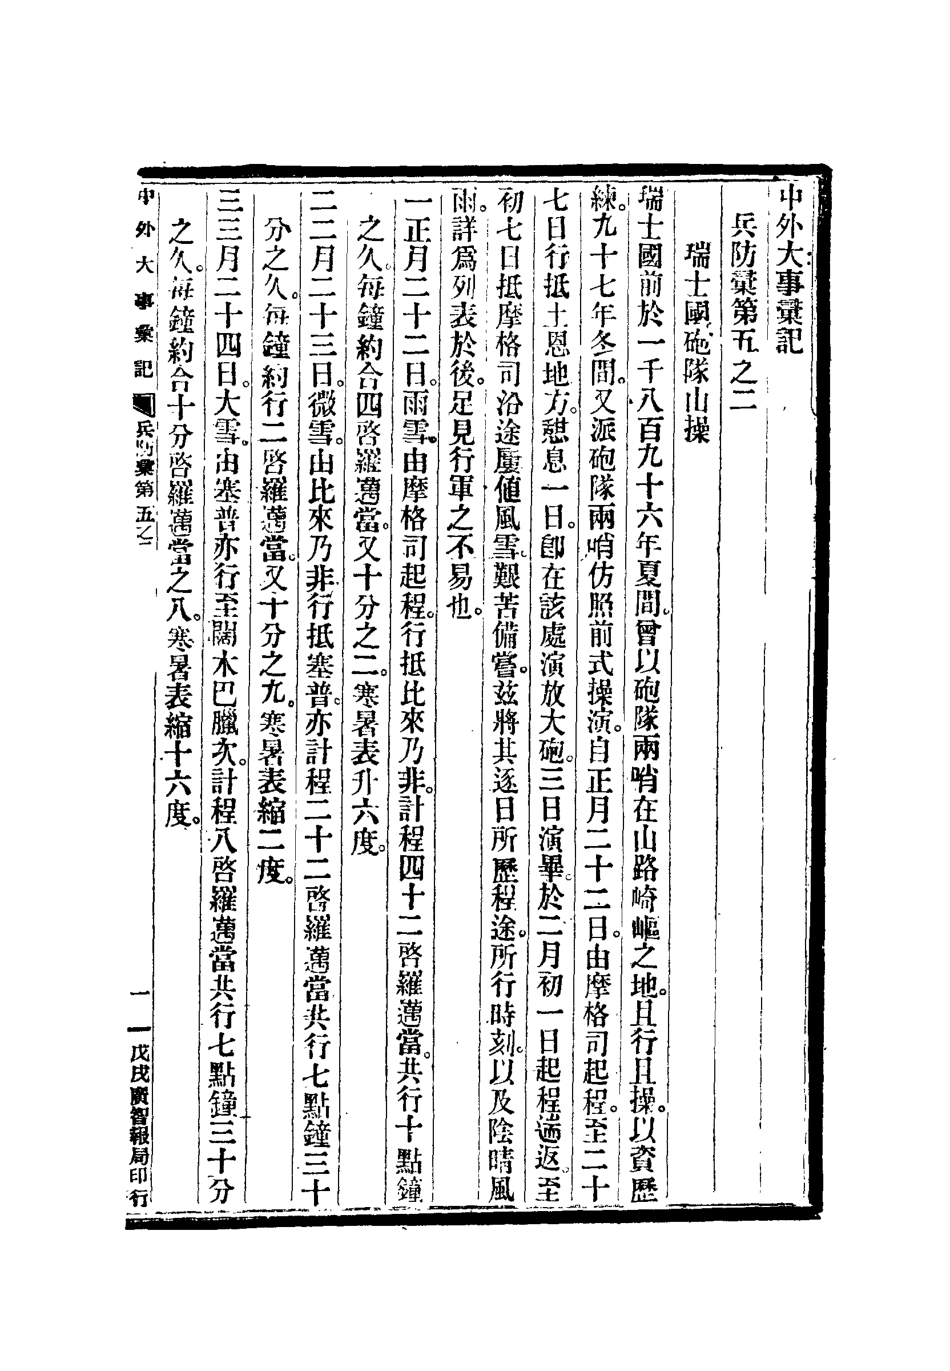 中外大事彙記
兵防彙第五之二
瑞士國砲隊山操
瑞士國前於一千八百九十六年夏間。曾以砲隊兩哨在山路崎嶇之地。且行且操。以資歷
練。九十七年冬間。又派砲隊兩哨仿照前式操演。自正月二十二日。由摩格司起程。至二十
七日行抵土恩地方。憇息一日。卽在該處演放大砲。三日演畢。於二月初一日起程遄返。至
初七日抵摩格司沿途屢値風雪。艱苦備嘗。玆將其逐日所歷程途。所行時刻。以及陰晴風
雨。詳爲列表於後。足見行軍之不易也。
一正月二十二日。雨雪。由摩格司起程。行抵比來乃非。計程四十二啓羅邁當。共行十點鐘
之久。每鐘約合四啓羅邁當。又十分之二。寒暑表升六度。
二二月二十三日。微雪。由比來乃非行抵塞普。亦計程二十二啓羅邁當共行七點鐘三十
分之久。每鐘約行二啓羅邁當。又十分之九。寒暑表縮二度。
三三月二十四日。大雪。由塞普亦行至闊木巴臘次。計程八啓羅邁當共行七點鐘三十分
之久。每鐘約合十分啓羅邁當之八。寒暑表縮十六度。
中外大事彙記 兵防彙第五之二 一 戊戌廣智報局印行